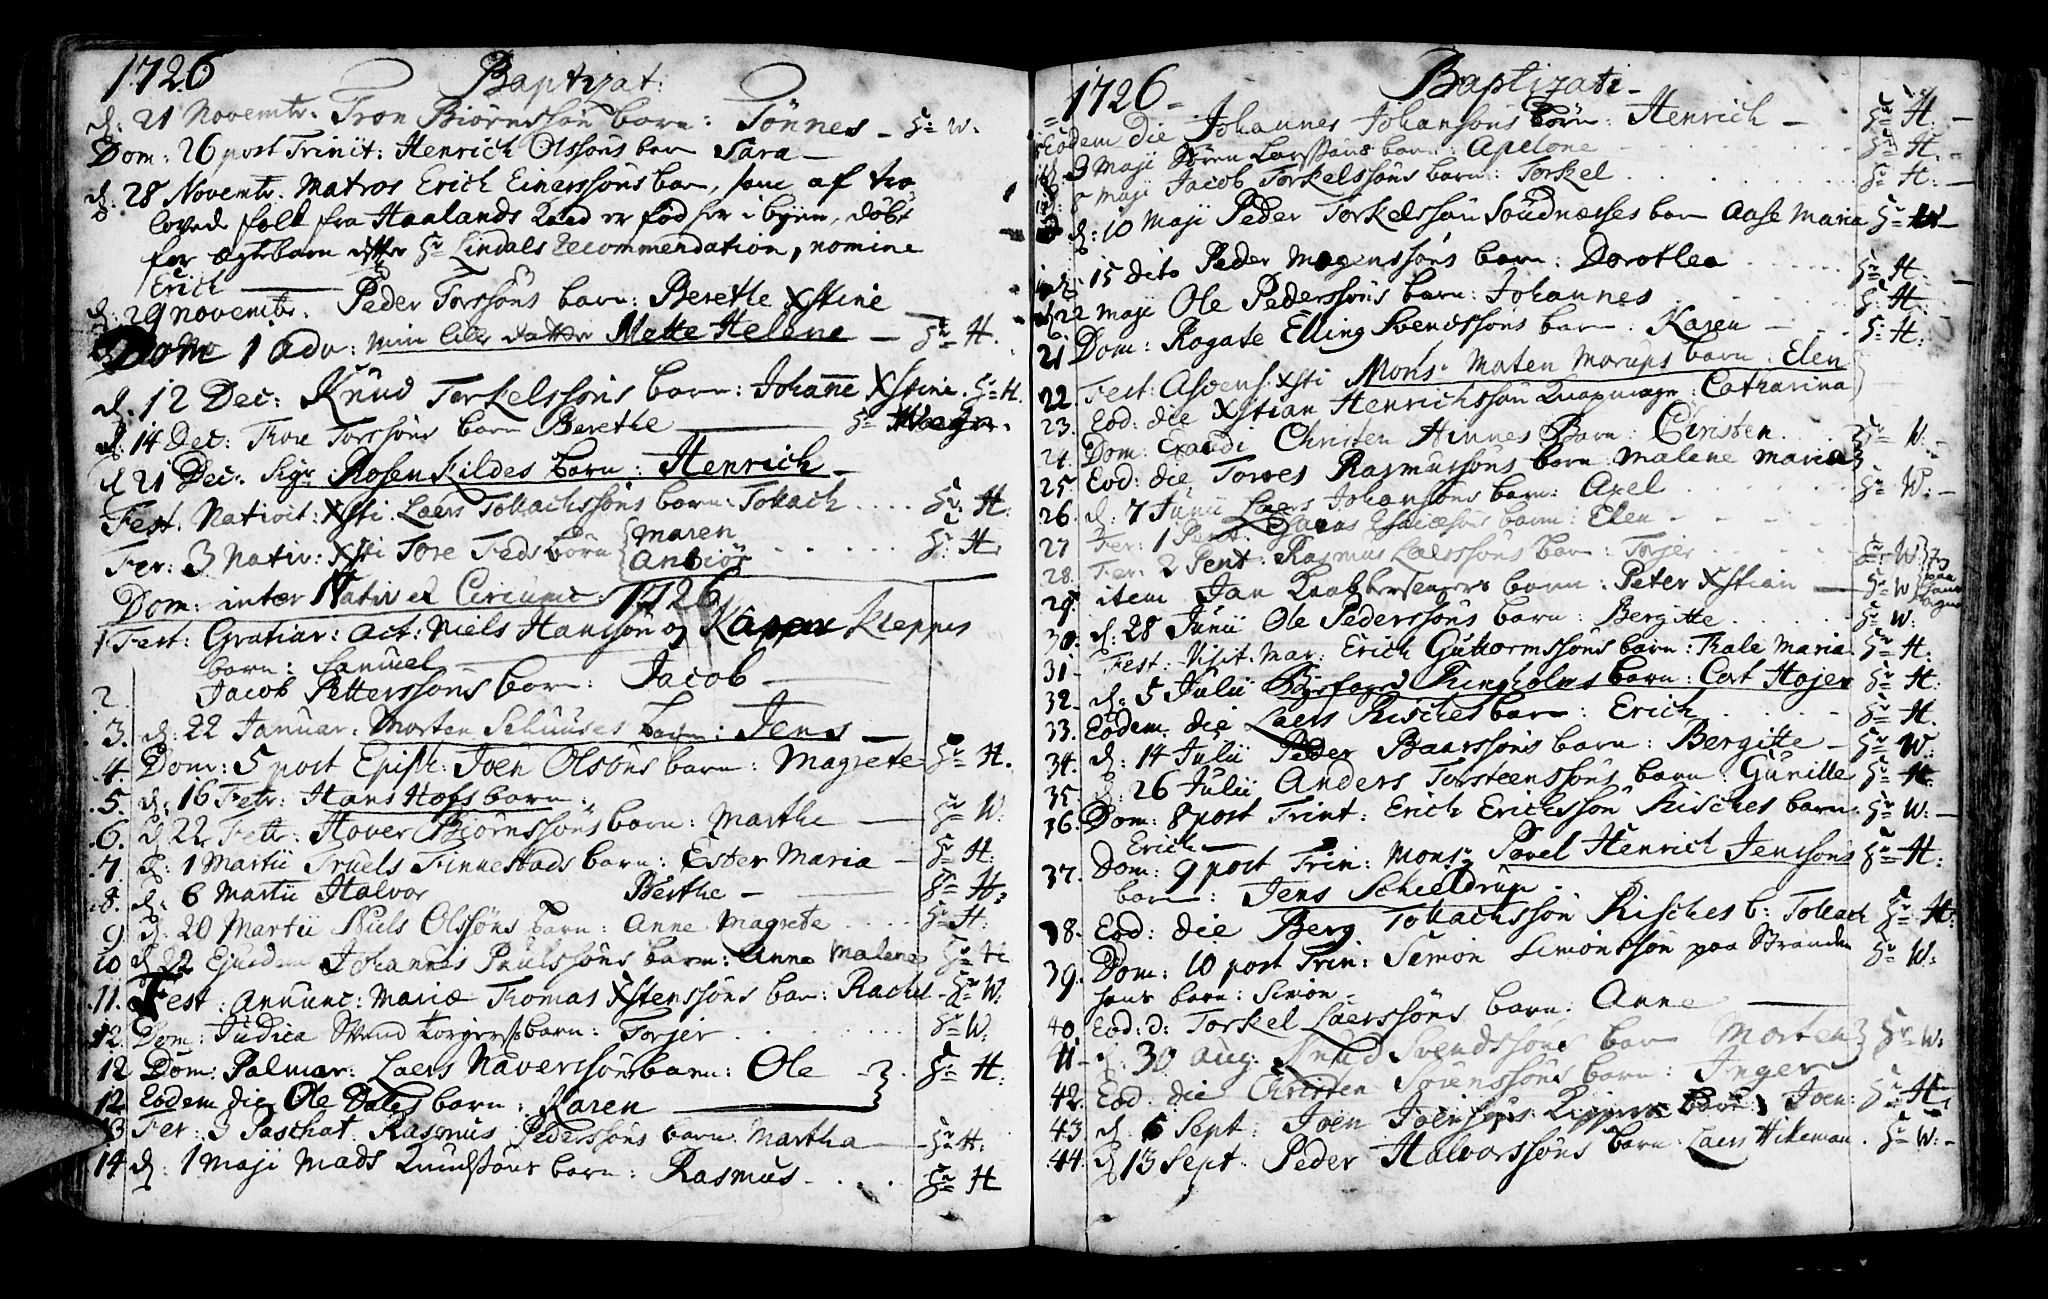 1726 Baptizat:
d. 21 Novembr. Tron Biörnssön barn: Tönnes – Hr W:
Dom: 26 post Trinit: Henrich Olssöns barn Sara –
d. 28 Novembr. Matros Erich Einerssöns barn, som af tro
lovede folk fra Haalands er fød her i byen, döbt
for ægtebarn efter Hr Lindals recommendation, nomine
Erich
d. 29 novembr. Peder Torssöns barn: Berethe Xstine
Dom 1 Adv: min lille datter Mette Helene – Hr H.
d. 12 Dec: Knud Torkelssöns barn: Johanne Xstine. Hr H.
d. 14 Dec: Tore Torssöns barn Berethe Hr
d 21 Dec: Sigr Rosenkildes barn: Henrich –
Fest. Nativit: Xsti Laers Tollachssöns barn: Tollach .... Hr H.
Fer: 3 Nativ: Xsti Tore Feds börn { Maren Hr H.
Anbiör
Dom: inter Nativ et Circumc: 1726
1 Fest: Gratiar: Act: Niels Hanssön og Kleppis
barn: Samuel
2. Jacob Petterssöns barn: Jacob
3. d. 22 Januar. Morten Schuudes barn: Jens –
4. Dom: 5 post Epiph: Joen Olsöns barn: Magrete Hr H.
5. d. 16 Febr: Hans Hofs barn:
6. d. 22 Febr: Hover Biörnssöns barn: Marthe – Hr W.
7. d. 1 Martii Truels Finnestads barn: Ester Maria – Hr H.
8. d. 6 Martii Halvor Berthe – Hr H.
9 d. 20 Martii Niels Olssöns barn: Anne Magrete .... Hr H.
10 d 22 Ejusdem Johannes Paulssöns barn: Anne Malene Hr H
11. Fest: Annunc: Mariæ Thomas Xstenssöns barn: Rachel – Hr W.
12. Dom: Judica barn: Torjer Hr W.
12 Dom: Palmar: Laers Naverssöns barn: Ole – Hr H.
12 Eodem die Ole Dales barn: Karen
13 Fer: 3 Paschat. Rasmus Pederssöns barn Martha – Hr H.
14 d. 1 Maji Mads Knudssöns barn: Rasmus .... Hr H
1726 – Baptizati –
Eodem Die Johannes Johansöns börn: Henrich – Hr H. –
3 Maji Sören Larssöns barn: Apelone Hr H. –
8 Maji Jacob Torkelssöns barn: Torkel Hr H. –
d. 10 Maji Peder Torkelssön Soudnæsses barn Aase Maria Hr W –
d. 15 dito Peder Mogenssöns barn: Dorothea Hr H. –
d 22 Maji Ole Pederssöns barn: Johannes Hr H.
21 Dom: Rogate Elling Svendssöns barn: Karen – Hr H.
22. Fest: Ascens: Xsti Mons: Maten Morups barn: Elen
23. Eod: die Xstian Henrichssön Knapmagr: Catharina
24. Dom: Exaudi Christen Hinnes Barn: Christen .... Hr W. –
25. Eod: die Torres Rasmussöns barn Malene Maria
26. d. 7 Junii Laers Johansöns barn: Axel Hr W: –
27 Fer: 1 Pent: barn: Elen –
28. Fer: 2 Pent: Rasmus Laerssöns barn: Torjer Hr W
29. item Jan barn: Peter Xstian – Hr W
30. d. 28 Junii Ole Pederssöns barn: Bergitte Hr W:
31. Fest: Visit: Mar: Erich Guttormssöns barn: Kale Maria Hr H.
32. d. 5 Julii Ringholms barn: Cort Hojer Hr H.
33. Eodem die Laers Risches barn: Erich Hr H.
34. d. 14 Julii Peder Baarssöns barn: Bergitte – Hr W:
35 d. 26 Julii Anders Torsteenssöns barn: Gunille Hr H.
36. Dom: 8 post Trint: Erich Erichssön Risches barn: Hr W: –
Erich –
37. Dom: 9 post Trin: Mons: Povel Henrich Jenssöns Hr H.
barn: Jens Schieldrup –
38. Eod: die Berg Tollachssön Risches b: Tollach Hr H.
39. Dom: 10 post Trin: Simon Simonssön paa Stranden Hr W.
hans barn: Simon –
40. Eod: d: Torkel Laerssöns barn: Anne
41 – d. 30 Aug: Knud Svendssöns barn Morten } Hr W.
42. Eod: die Christen Sörenssöns barn: Inger Hr H.
43 d. 6 Sept: Joen barn: Joen: Hr H.
44. d 13 Sept: Peder Halvorssöns barn: Laers Hr W: –